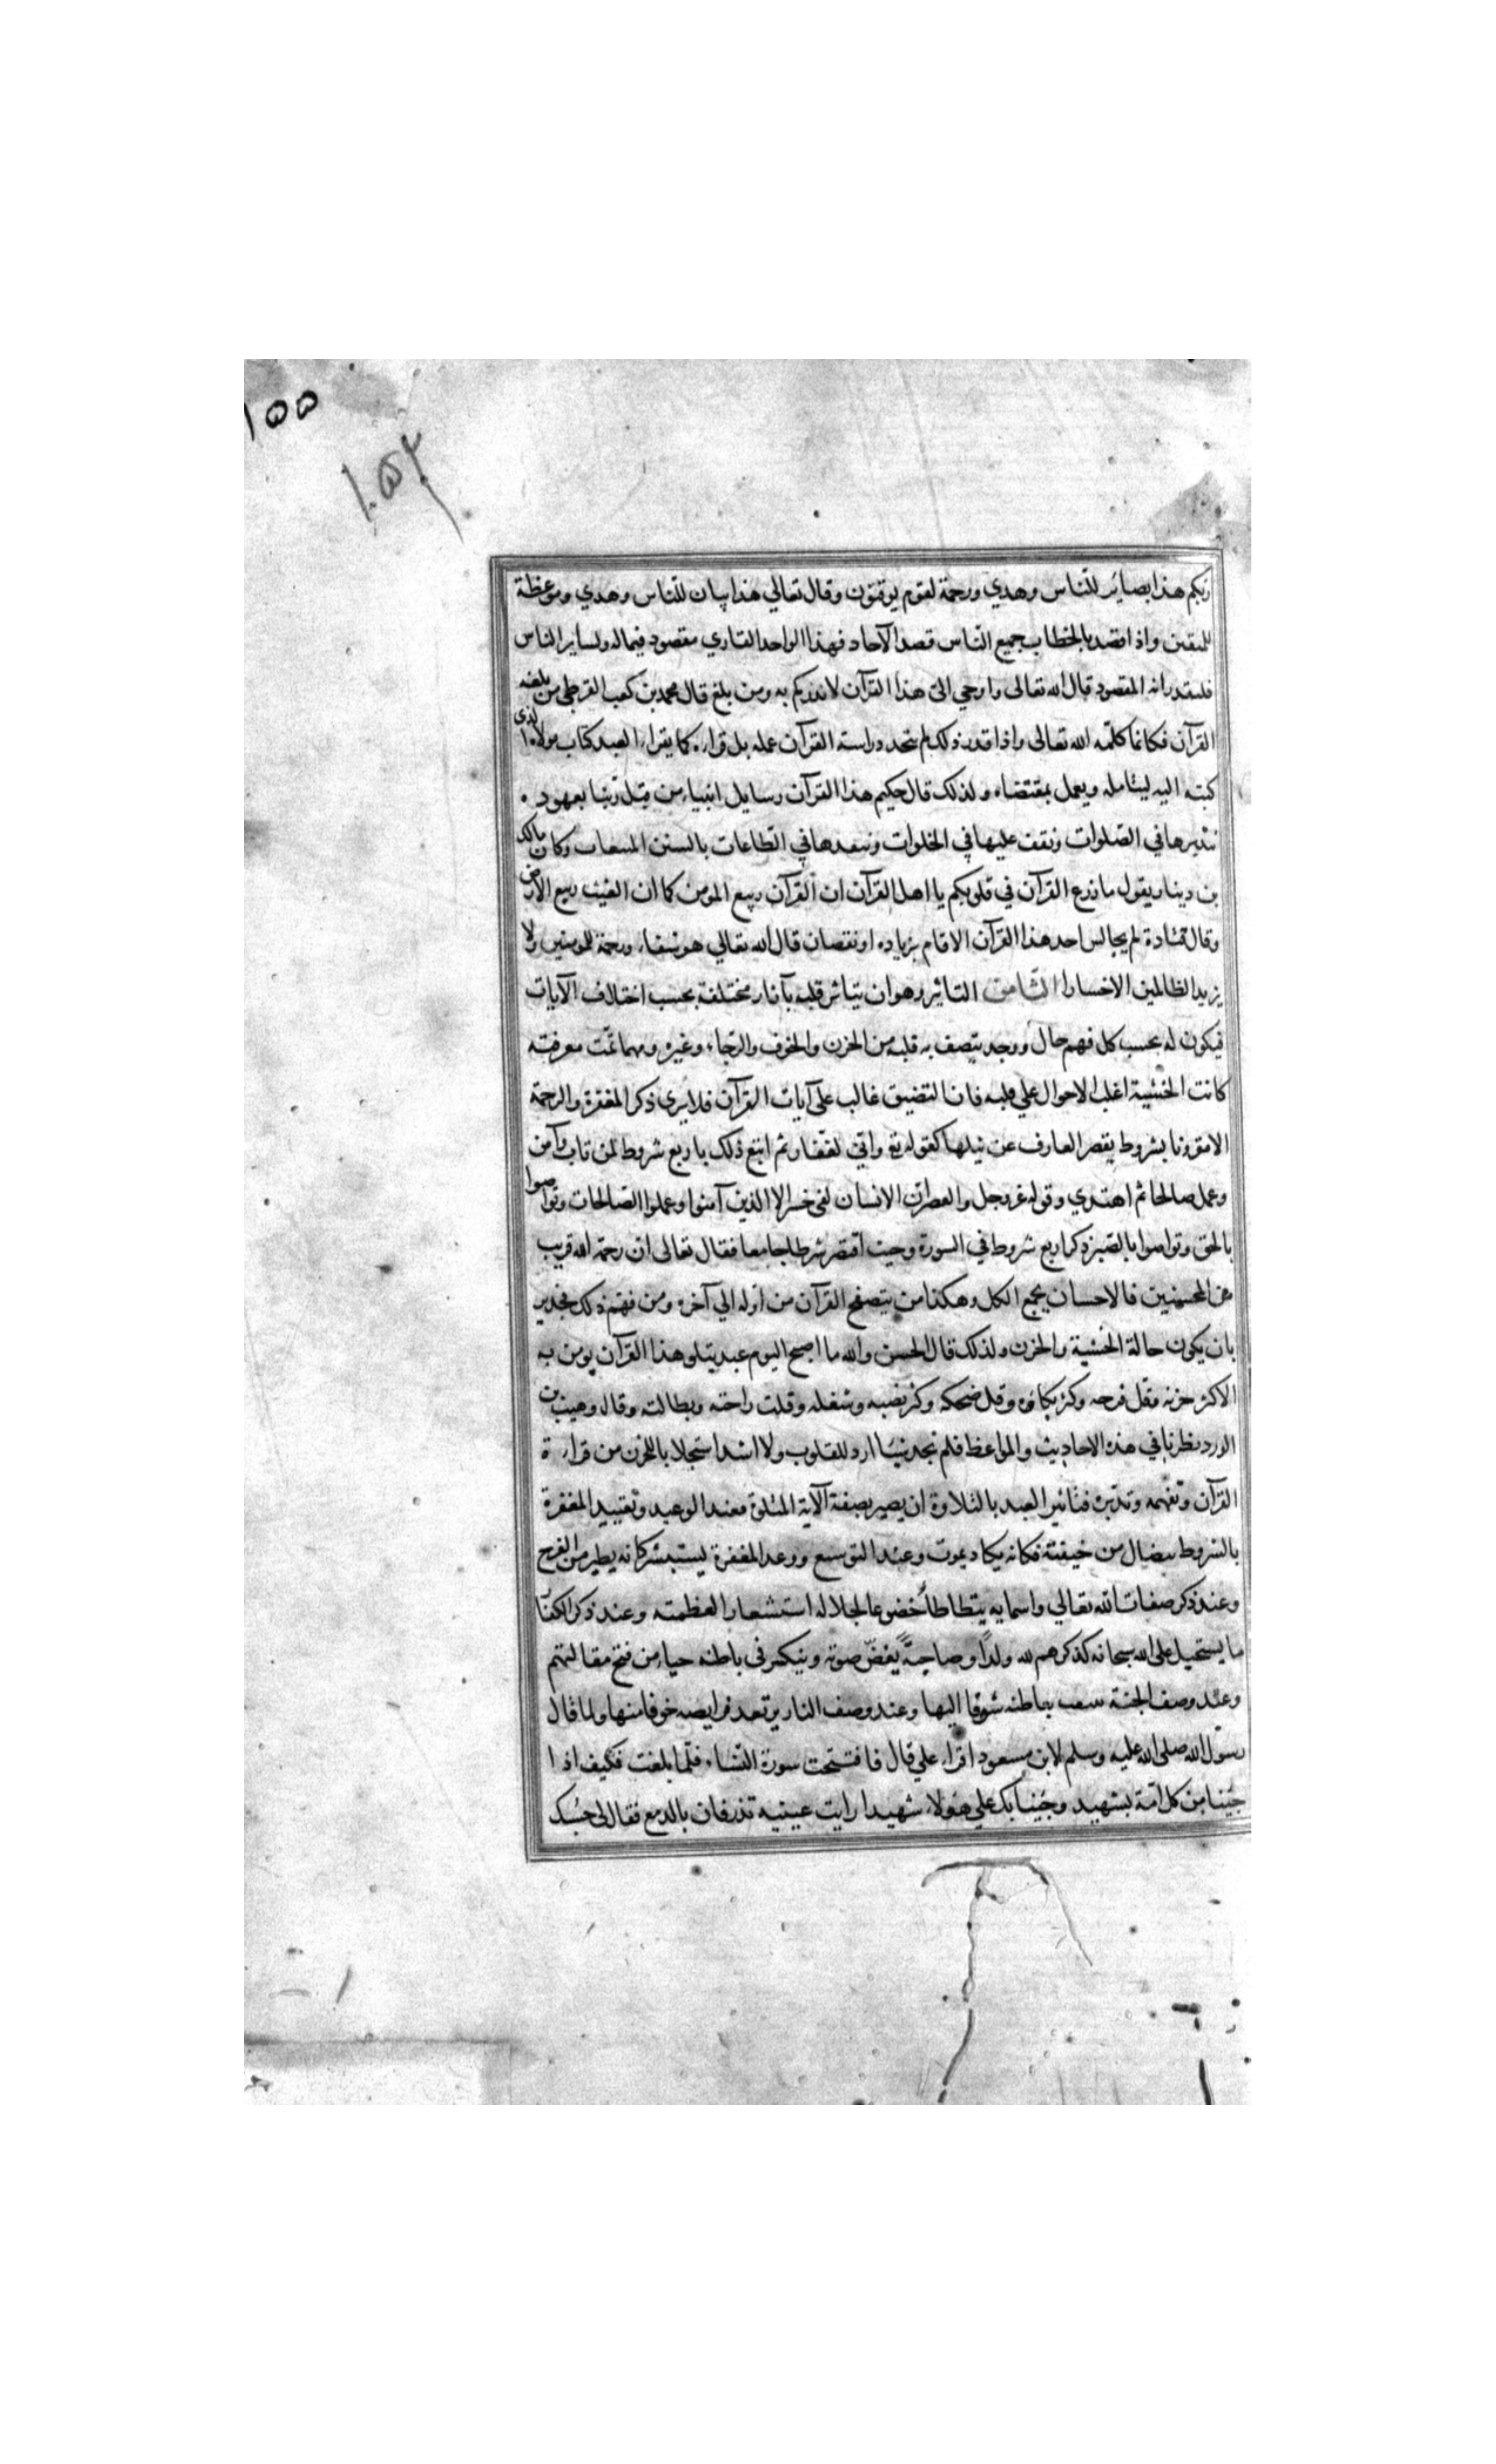 ١٥٥
١٥٤
ربكم هذا بصاير للناس وهدي ورحمة لقوم يوقنون وقال تعالي هذا بيان للناس وهدي وموعظة
للمتقين واذا قصد بالخطاب جميع الناس قصد الآحاد فهذا الواحد القاري مقصود فماله ولساير الناس
فليقدر انه المقصود قال الله تعالى واوحي الىّ هذا القرآن لانذركم به ومن بلغ قال محمد بن كعب القرظي من بلغه
القرآن فكانما كلّمه الله تعالى واذا قدر ذلك لم يتخد دراسته القرآن عمله بل قراه كما يقراء العبد كتاب مولاه الذى
كبته اليه ليتامله ويعمل بمقتضاه ولذلك قال حكيم هذا القرآن رسايل انبياء من قبل ربنا بعهوده
نتدبرها في الصلوات ونقف عليها في الخلوات وننفدها في الطاعات بالسنن المتبعات وكان مالك
بن دينار يقول ما زرع القرآن في قلوبكم يا اهل القرآن ان القرآن ربيع المومن كما ان الغيث ربيع الارض
وقال قتادة لم يجالس احد هذا القرآن الا قام بزياده او نقصان قال الله تعالي هو شفاء ورحمة للمومنين ولا
يزيد الظالمين الا خسارا الثامن التاثير وهو ان يتاثر قلبه بآثار مختلفة بحسب اختلاف الآيات
فيكون له بحسب كل فهم حال ووجد يتصف به قلبه من الحزن والخوف والرجاء وغيره ومهما تمّت معرفته
كانت الخشية اغلب الاحوال علي قلبه فان التضيق غالب على آيات القرآن فلا يري ذكر المغفرة والرحمة
الا مقرونا بشروط يقصر العارف عن نيلها كقوله تع واني لغفّار ثم اتبع ذلك باربع شروط لمن تاب وآمن
وعمل صالحا ثم اهتدي وقوله عزوجل والعصر ان الانسان لفى خسر الا الذين آمنوا وعملوا الصالحات وتواصوا
بالحق وتواصوا بالصبر ذكر اربع شروط في السورة وحيث اقتصر شرطا جامعا فقال تعالى ان رحمة الله قريب
من المحسنين فالاحسان يجمع الكل وهكذا من يتصفح القرآن من اوله الي آخره ومن فهم ذلك فجدير
بان يكون حالة الخشية والحزن ولذلك قال الحسن والله ما اصبح اليوم عبد يتلو هذا القرآن يومن به
الا كثر حزنه وقل فرحه وكثر بكاؤه وقل ضحكه وكثر نصبه وشغله وقلت راحته وبطالته وقال وهيب بن
الورد نظرنا في هذه الاحاديث والمواعظ فلم نجد شيئا ارد للقلوب ولا اشد استجلابا للحزن من قراءة
القرآن وتفهمه وتدبره فتاثير العبد بالتلاوة ان يصير بصفة الآية المتلوة فعند الوعيد وتقييد المغفرة
بالشروط يتضال من خيفته فكانه يكاد يموت وعند التوسع ووعد المغفرة يستبشر كانه يطير من الفرح
وعند ذكر صفات الله تعالي واسمايه يتطاطأ خضوعا لجلاله استشعارا لعظمته وعند ذكر الكفّا
ما يستحيل على الله سبحانه كذكرهم لله ولدًا وصاحبةً يغضّ صوته وينكسر في باطنه حياء من قبح مقالتهم
وعند وصف الجنة بباطنه شوقا اليها وعند وصف النار يرتعد فرايصه خوفا منها ولما قال
رسول الله صلى الله عليه وسلم لابن مسعود اقراء علي قال فافتتحت سورة النساء فلما بلغت فكيف اذا
جئنا من كل امّة بشهيد وجئنا بك علي هؤلاء شهيدا رايت عينيه تذرفان بالدمع فقال لى حسبك